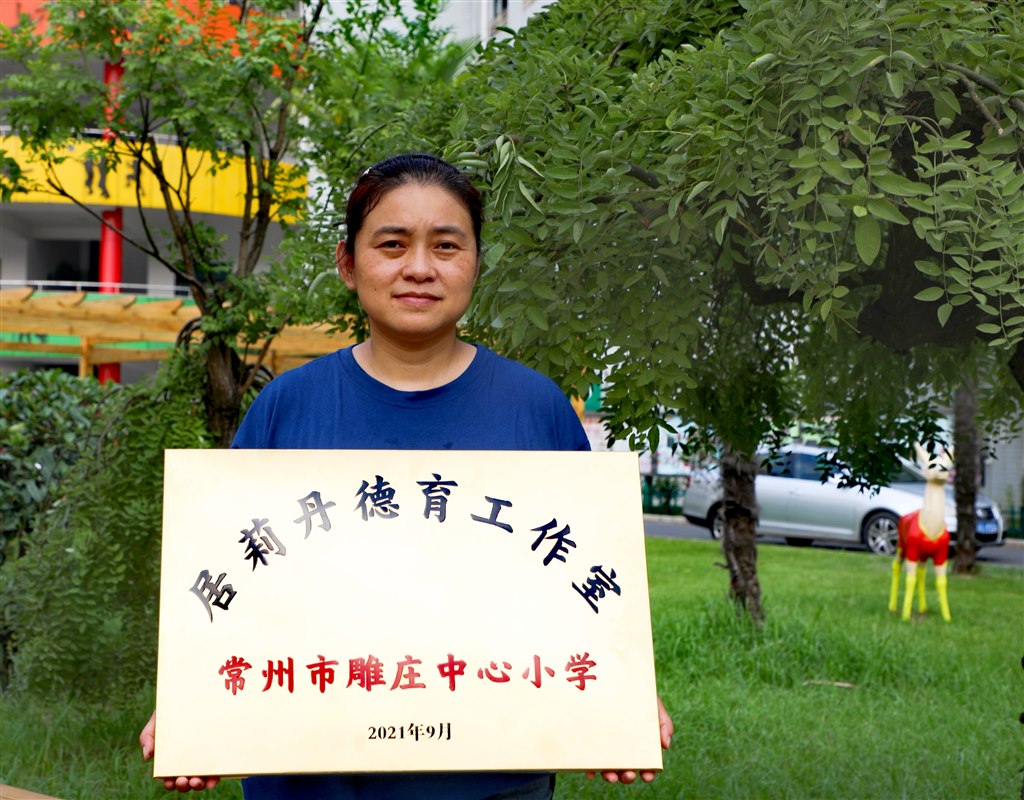 居莉丹德育工作室
常州市雕庄中心小学
2021年9月